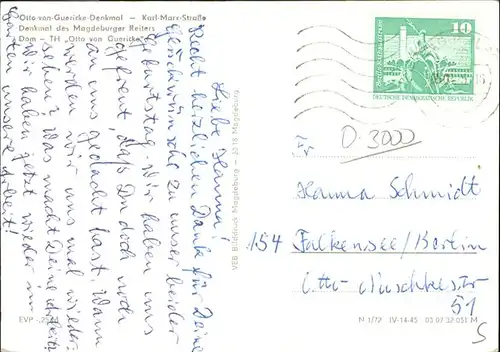 Otto-von-Guericke-Denkmal – Karl-Marx-Straße
Denkmal des Magdeburger Reiters
Dom – TH „Otto von Guericke"
Liebe Hanna!
Recht herzlichen Dank für Deine
Glückwünsche zu unser beider
Geburtstag. Wir haben uns
gefreut, daß Du doch noch
an uns gedacht hast. Wann
werden wir uns mal wieder-
sehen? Was macht Deine Arbeit?
Wir haben jetzt wieder im
Garten unsere Arbeit!
VEB Bilddruck Magdeburg – 3018 Magdeburg
10
DEUTSCHE DEMOKRATISCHE REPUBLIK
D-3000
Hanna Schmidt
154 Falkensee/Berlin
51
EVP -,25 M
N 1/72 IV-14-45 03 07 32 051 M